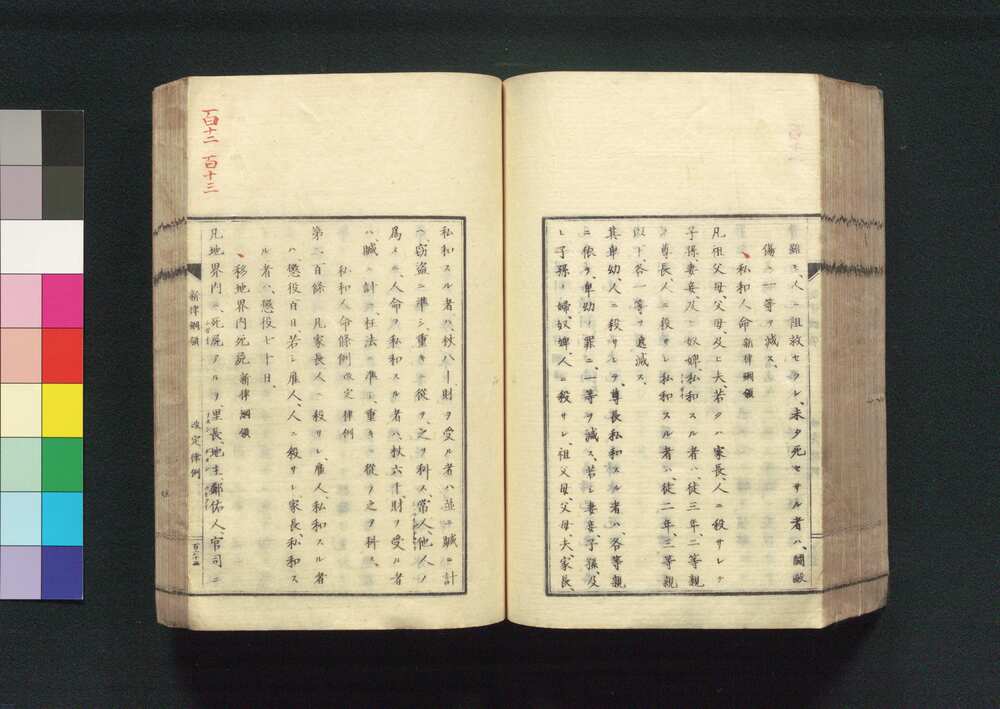 雖モ、人ニ阻救セラレ、未タ死セサル者ハ、鬪毆
傷ニ一等ヲ減ス、
私和人命 新律綱領
凡祖父母、父母、及ヒ夫、若クハ家長、人ニ殺サレテ
子孫、妻妾、及ヒ奴婢、私和スル者ハ、徒三年、二等親
ノ尊長、人ニ殺サレ、私和スル者ハ、徒二年、三等親
以下、各一等ヲ遞減ス、
其卑幼、人ニ殺サレテ、尊長私和スル者ハ、各等親
ニ依リ、卑幼ノ罪ニ、一等ヲ減ス、若シ妻妾、子孫、及
ヒ子孫ノ婦、奴婢、人ニ殺サレ、祖父母、父母、夫、家長、
私和スル者ハ、杖八十、財ヲ受ル者ハ、並ニ贓ニ計
ヘ、窃盗ニ準シ、重キニ從ヲ、之ヲ科ス、常人、他人ノ
為メニ、人命ヲ私和スル者ハ、杖六十、財ヲ受ル者
ハ、贓ニ計ヘ、枉法ニ準シ、重キニ從ヲ之ヲ科ス、
私和人命條例 改定律例
第二百條 凡家長、人ニ殺サレ、雇人、私和スル者
ハ、懲役百日、若シ雇人、人ニ殺サレ、家長、私和ス
ル者ハ、懲役七十日、
移地界内死屍 新律綱領
凡地界内ニ、死屍アルヲ、里長、地主、鄰佑人、官司ニ
新律綱領
改定律例
百十二 百十三